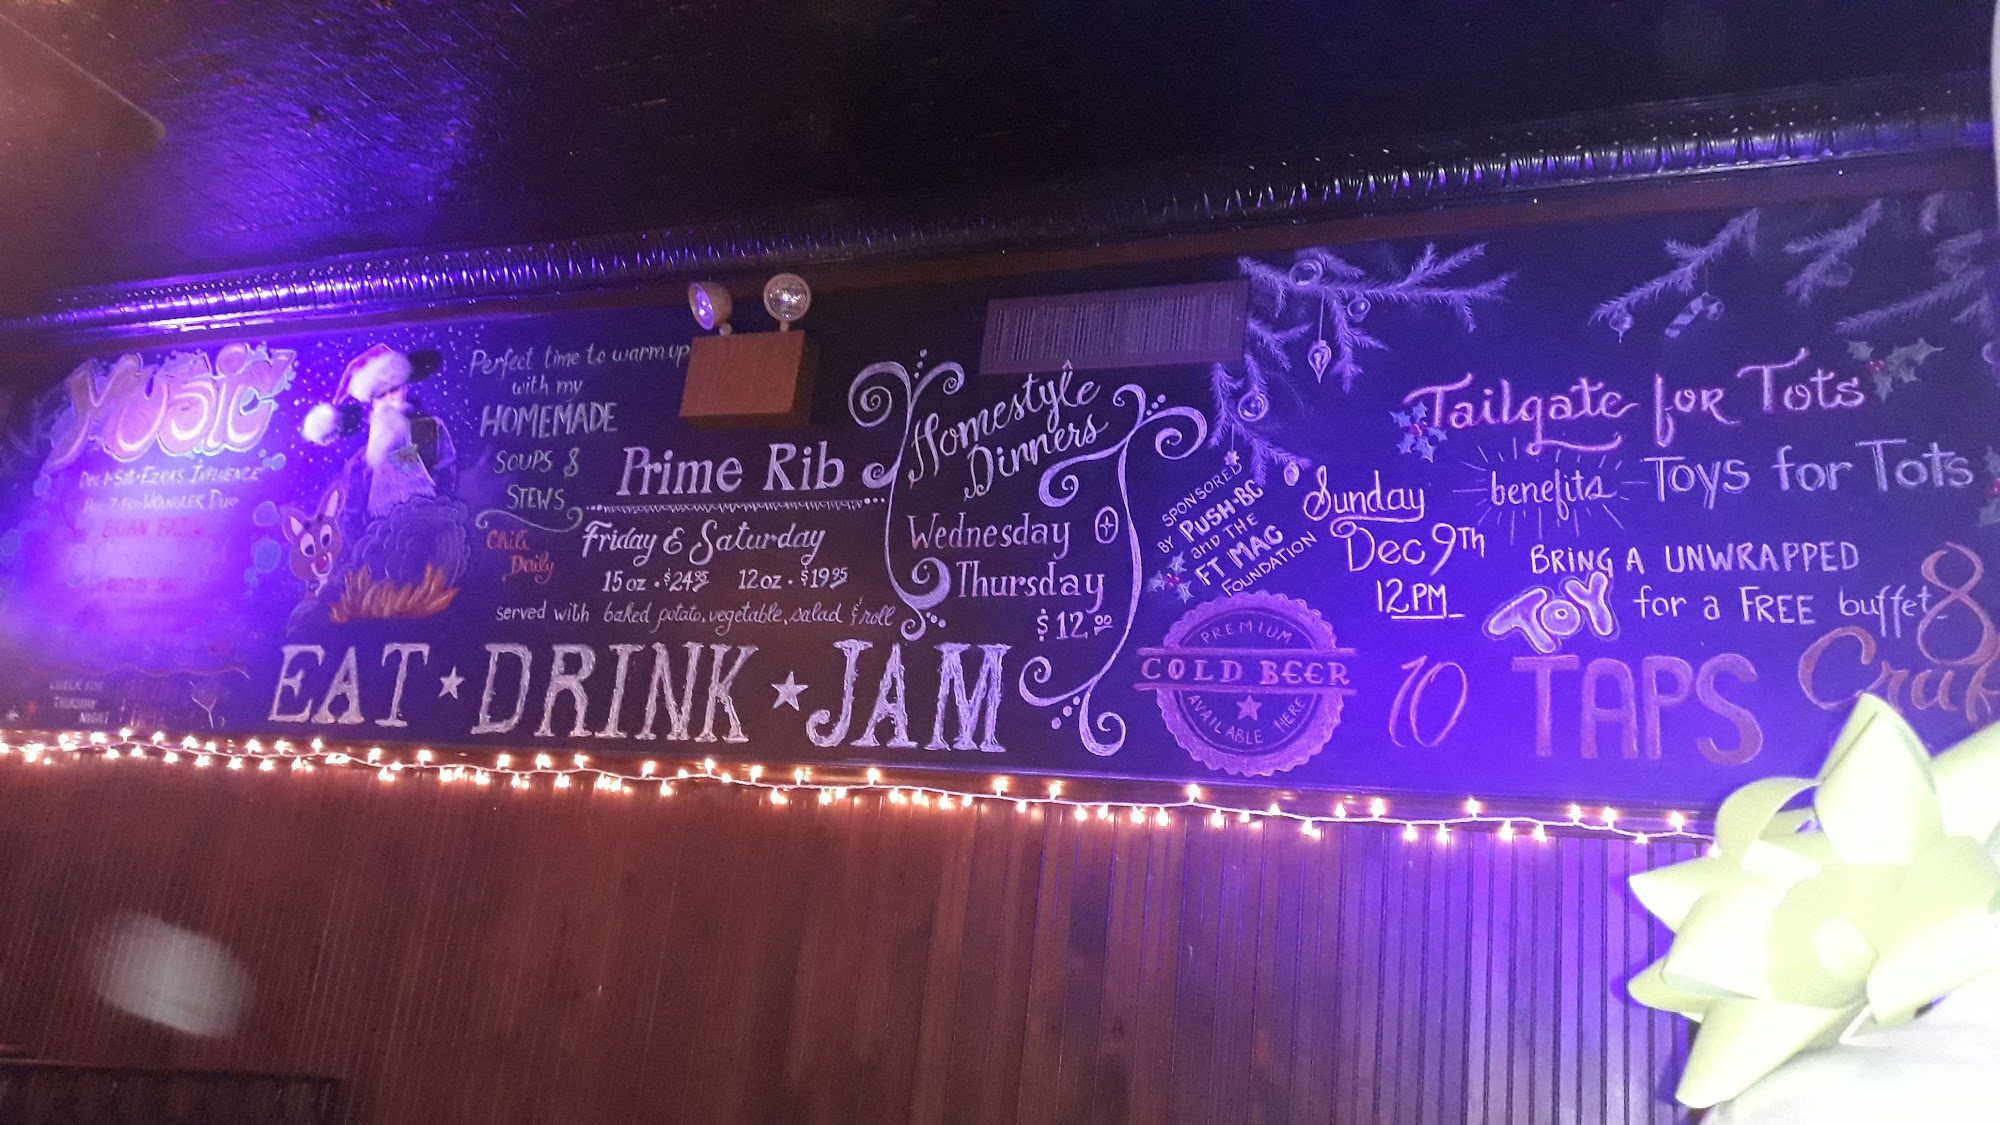 MUSiC
Dec 1 • Sat • EZRA'S INFLUENCE
WRANGLER DUO
BRIAN
CHECK FOR
THURSDAY
NIGHT
Perfect time to warm up
with my
HOMEMADE
SOUPS &
STEWS
Chili
Daily
Prime Rib
Friday & Saturday
15 oz • $24.95 12 oz • $19.95
served with baked potato, vegetable, salad & roll
EAT ★ DRINK ★ JAM
Homestyle
Dinners
Wednesday
Thursday
$12.00
SPONSORED
BY PUSH-BC
and THE
FT MAC
FOUNDATION
Tailgate for Tots
benefits Toys for Tots
Sunday
Dec 9TH
12PM
BRING A UNWRAPPED
TOY for a FREE buffet
PREMIUM
COLD BEER
AVAILABLE HERE
10 TAPS
8
Craf